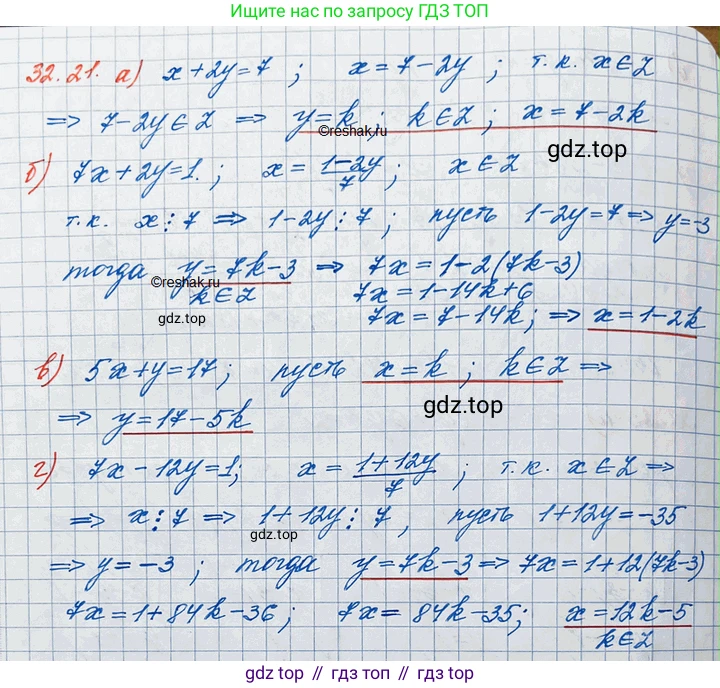 Ищите нас по запросу ГДЗ ТОП
32.21. а) x+2y=7 ; x=7-2y ; т.к. x∈Z
=> 7-2y∈Z => y=k ; k∈Z ; x=7-2k
©reshak.ru
gdz.top
б) 7x+2y=1. ; x= (1-2y)/7 ; x∈Z
т.к. x⋮7 => 1-2y⋮7 ; пусть 1-2y=7 => y=-3
тогда y=7k-3 => 7x=1-2(7k-3)
©reshak.ru
k∈Z 7x=1-14k+6
gdz.top
7x=7-14k; => x=1-2k
в) 5x+y=17 ; пусть x=k ; k∈Z =>
=> y=17-5k
gdz.top
г) 7x-12y=1; x= (1+12y)/7 ; т.к. x∈Z =>
=> x⋮7 => 1+12y⋮7 , пусть 1+12y=-35
gdz.top
=> y=-3 ; тогда y=7k-3 => 7x=1+12(7k-3)
7x=1+84k-36 ; 7x=84k-35; x=12k-5
k∈Z
gdz.top // гдз топ // gdz.top